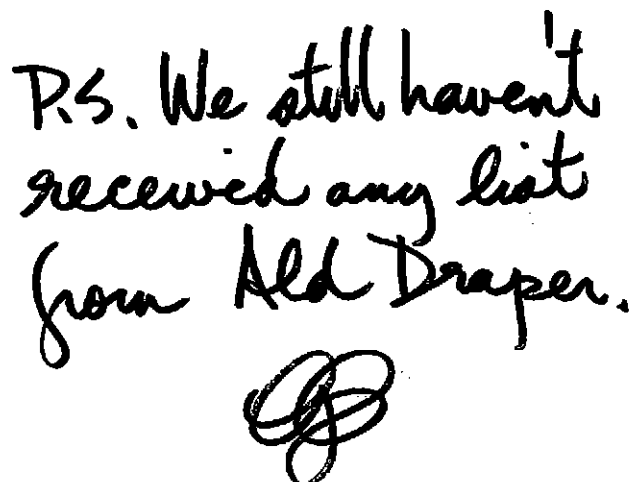 P.S. We still haven't
received any list
from Ald Draper.